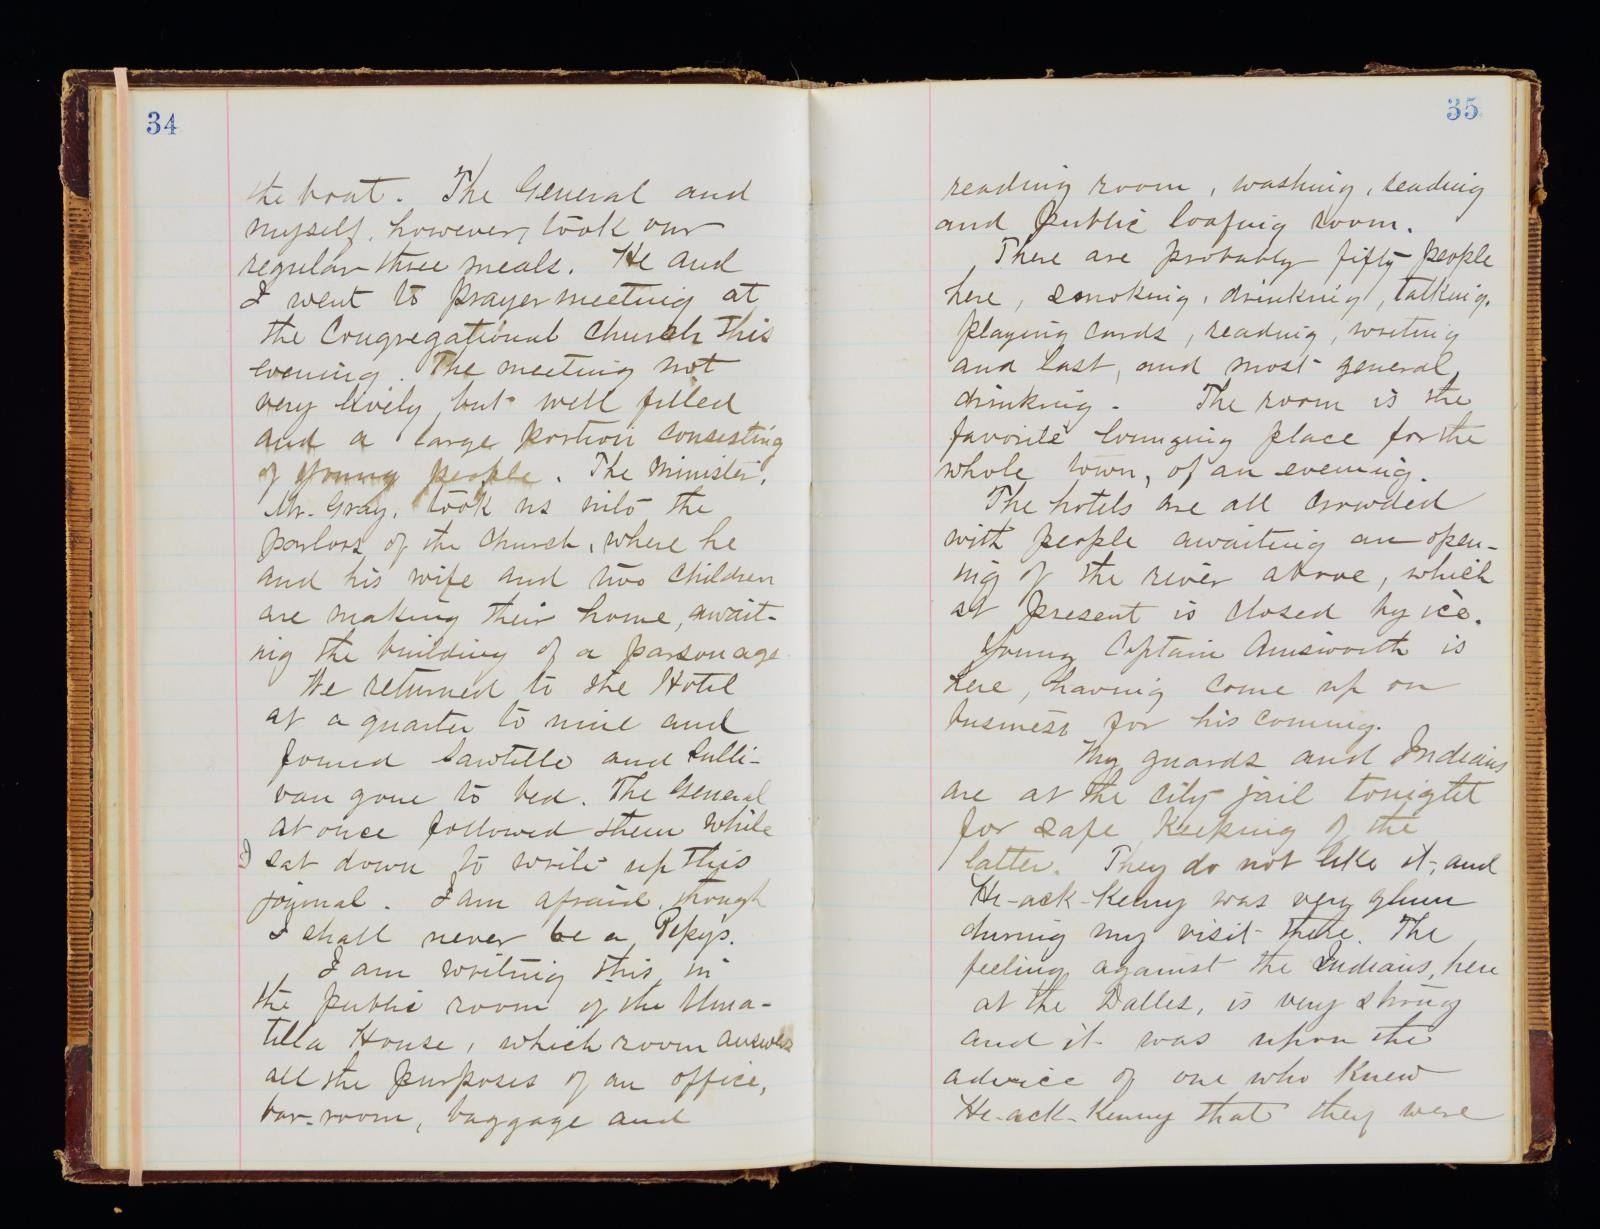 34
the boat. The General and
myself, however, took our
regular three meals. He and
I went to prayer meeting at
the Congregational Church this
evening. The meeting not
very lively, but well filled
and a large portion consisting
of young people. The minister,
Mr. Gray, took us into the
parlors of the church, where he
and his wife and two children
are making their home, await-
ing the building of a parsonage.
We returned to the Hotel
at a quarter to nine and
found Sawtelle and Sulli-
van gone to bed. The General
at once followed them while
I sat down to write up this
journal. I am afraid, though
I shall never be a Pepys.
I am writing this in
the public room of the Uma-
tilla House, which room answers
all the purposes of an office,
bar-room, baggage and
35
reading room, washing, reading
and public loafing room.
There are probably fifty people
here, smoking, drinking, talking,
playing cards, reading, writing
and last, and most general,
drinking. The room is the
favorite lounging place for the
whole town, of an evening.
The hotels are all crowded
with people awaiting an open-
ing of the river above, which
at present is closed by ice.
Young Captain Ainsworth is
here, having come up on
business for his coming.
My guards and Indians
are at the city jail tonight
for safe keeping of the
latter. They do not like it, and
He-ack-Kenny was very glum
during my visit there. The
feeling against the Indians, here
at the Dalles, is very strong
and it was upon the
advice of one who knew
He-ack-Kenny that they were